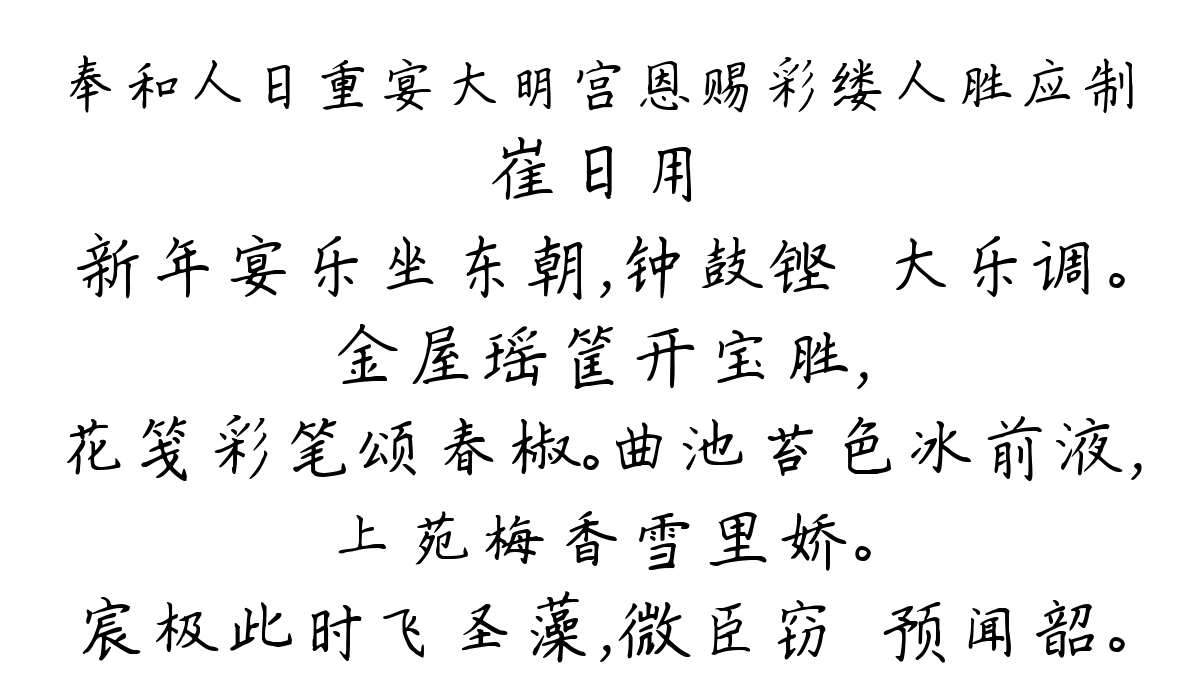 奉和人日重宴大明宫恩赐彩缕人胜应制
崔日用
新年宴乐坐东朝,钟鼓铿 大乐调。
金屋瑶筐开宝胜,
花笺彩笔颂春椒。曲池苔色冰前液,
上苑梅香雪里娇。
宸极此时飞圣藻,微臣窃 预闻韶。